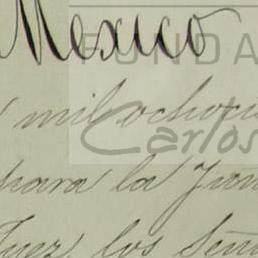 Mexico
FUNDA
mil ochoci
Carlos
para la Jun
los Seño